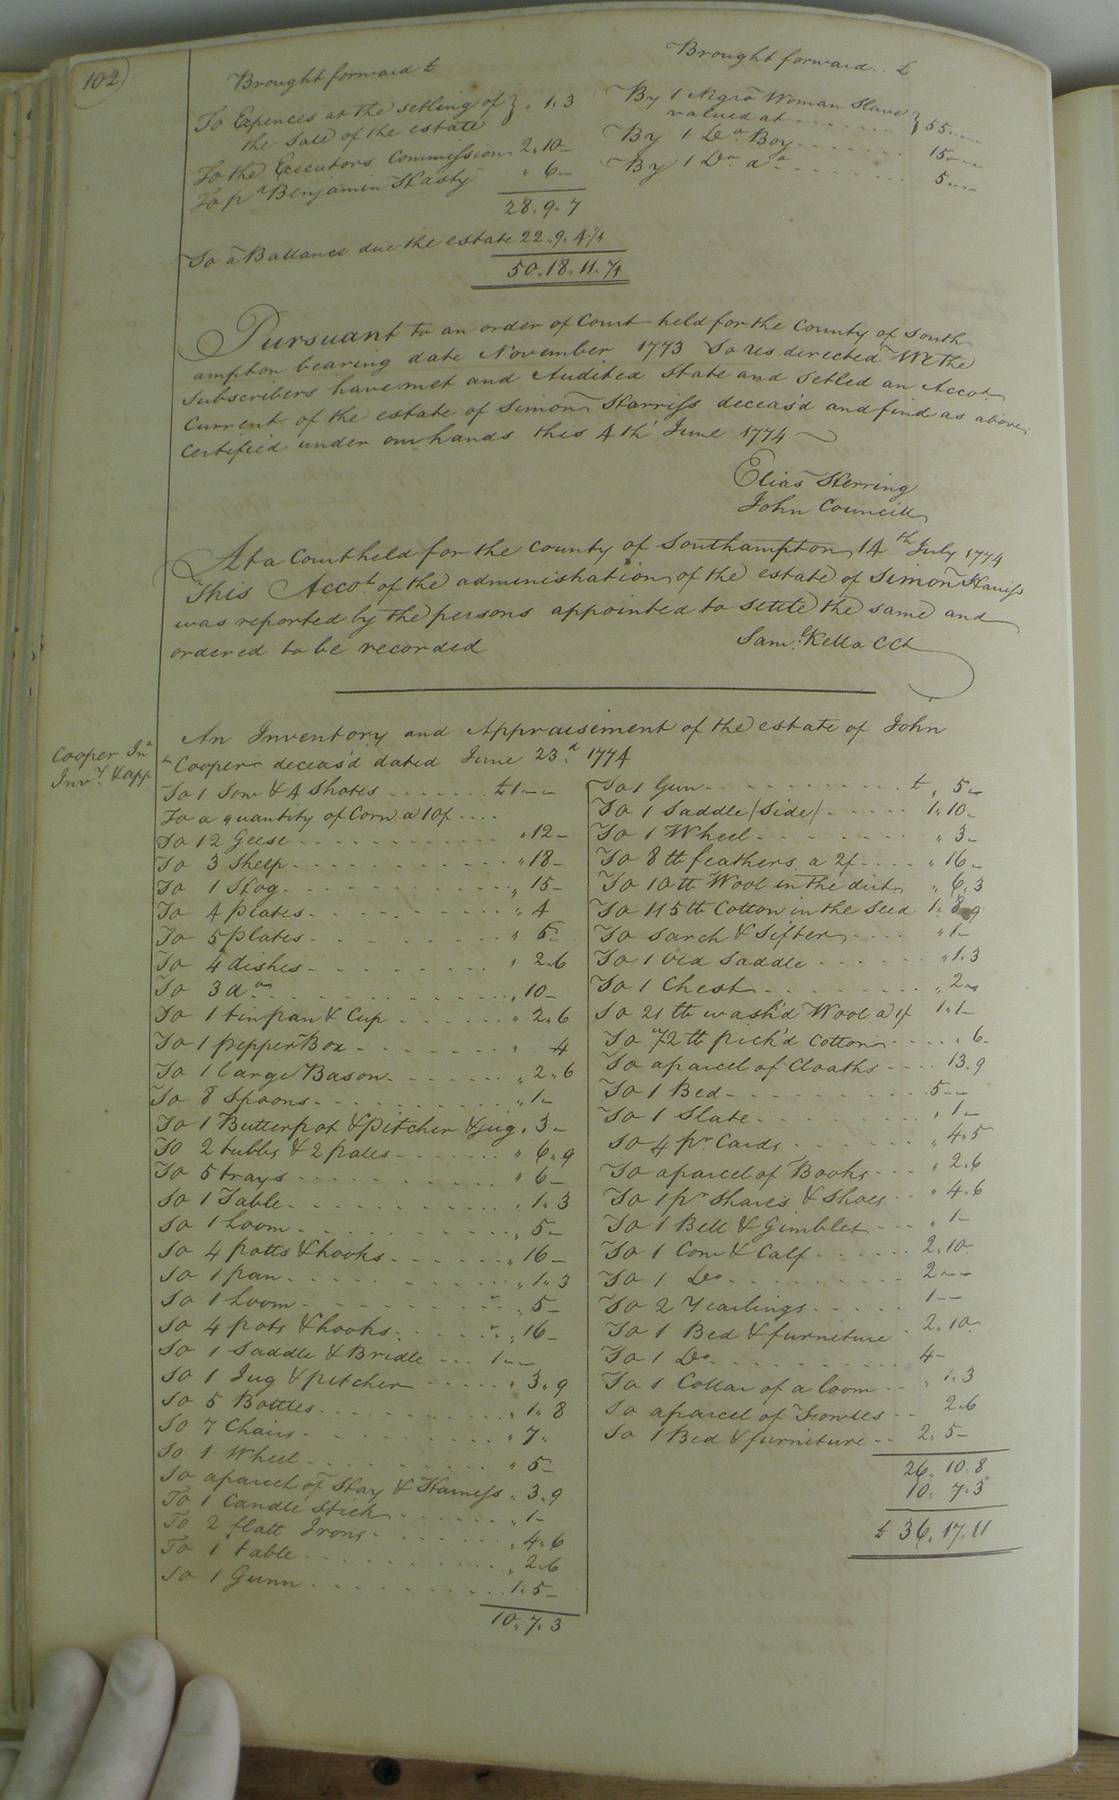 102
Brought forward £
To Expences at the setling of } " 1.3
the sale of the estate
To the Executors Commission 2.10-
To pd Benjamin Hasty " 6-
28.9.7
To a Ballance due the estate 22.9.4¼
50.18.11¼
Brought forward .. £
By 1 Negro Woman Slave } 55....
valued at
By 1 Do Boy 15....
By 1 Do do 5....
Pursuant to an order of Court held for the County of South
ampton bearing date November 1773 To us directed We the
Subscribers have met and Audited State and Setled an Accot
Current of the estate of Simon Harriss deceas'd and find as above
Certified under our hands this 4th June 1774
Elias Herring
John Councill
At a Court held for the County of Southampton 14th July 1774
This Accot. of the administration of the estate of Simon Harriss
was reported by the persons appointed to settle the same and
ordered to be recorded
Saml. Kello CCt
Cooper Jno
Invy. & app
An Inventory and Appraisement of the estate of John
Cooper deceas'd dated June 23d. 1774
To 1 Sow & 4 Shotes £1--
To a quantity of Corn a 10/
To 12 Geese " 12-
To 3 Sheep " 18-
To 1 Hog " 15-
To 4 plates " 4
To 5 plates " 5-
To 4 dishes " 2.6
To 3 do " 10-
To 1 tin pan & Cup " 2.6
To 1 pepper Box " 4
To 1 large Bason " 2.6
To 8 Spoons " 1-
To 1 Butter pot & pitcher & Jug " 3-
To 2 tubbs & 2 pales " 6.9
To 5 trays " 6-
To 1 Table " 1.3
To 1 Loom " 5-
To 4 potts & hooks " 16-
To 1 pan " 1.3
To 1 Loom " 5-
To 4 pots & hooks " 16-
To 1 Saddle & Bridle 1--
To 1 Jug & pitcher " 3.9
To 5 Bottles " 1.8
To 7 Chairs " 7"
To 1 Wheel " 5-
To a parcel of Hay & Harness " 3.9
To 1 Candle Stick " 1-
To 2 flatt Irons " 4.6
To 1 table " 2.6
To 1 Gunn 1.5-
10.7.3
To 1 Gun £ " 5-
To 1 Saddle (Side) 1.10-
To 1 Wheel " 3-
To 8 lb feathers a 2/ " 16-
To 10 lb Wool in the dirt " 6.3
To 115 lb Cotton in the Seed 1.8.9
To Sarch & Sifter " 1-
To 1 old Saddle " 1.3
To 1 Chest " 2-
To 21 lb wash'd Wool a 1/ 1.1-
To 72 lb pick'd Cotton " 6-
To a parcel of Cloaths 13.9
To 1 Bed 5--
To 1 Slate " 1-
To 4 pr Cards " 4.5
To a parcel of Books " 2.6
To 1 pr Shares & Shoes " 4.6
To 1 Bell & Gimblet " 1-
To 1 Cow & Calf 2.10
To 1 Do 2--
To 2 Yearlings 1--
To 1 Bed & furniture 2.10
To 1 Do 4-
To 1 Collar of a loom " 1.3
To a parcel of 2.6
To 1 Bed & furniture 2.5-
26.10.8
10.7.3
£ 36.17.11